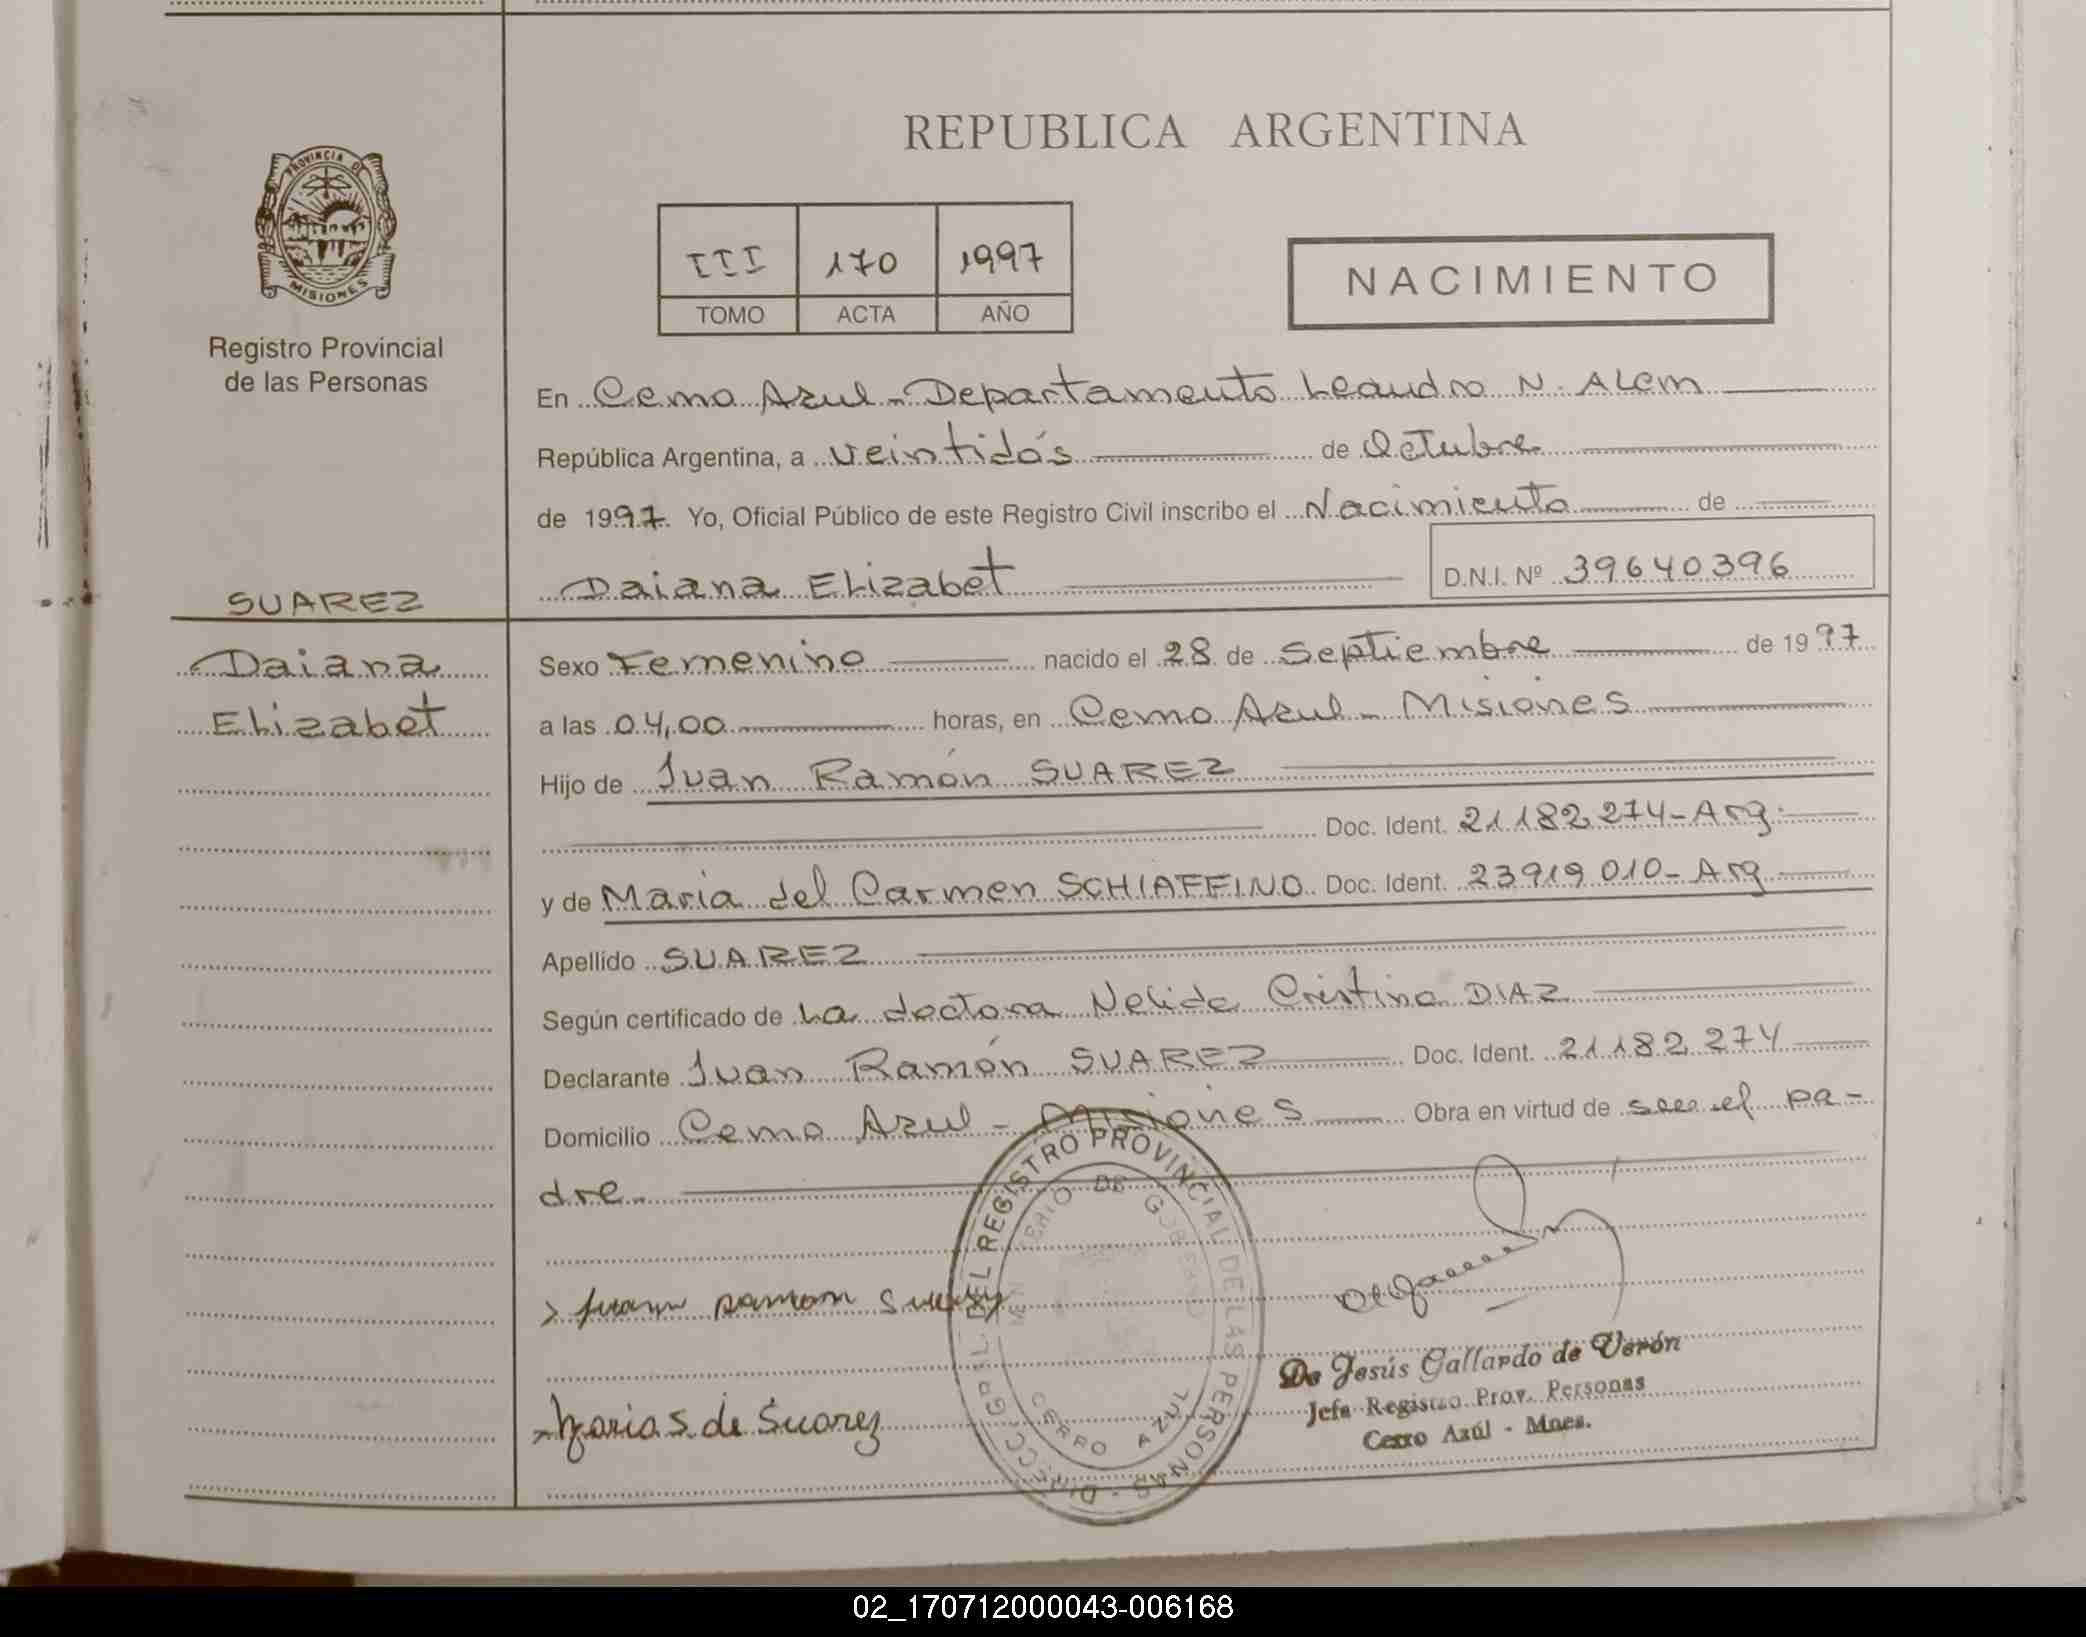 PROVINCIA DE
MISIONES
Registro Provincial
de las Personas
SUAREZ
Daiana
Elizabet
REPUBLICA ARGENTINA
III 170 1997
TOMO ACTA AÑO
NACIMIENTO
En Cerro Azul - Departamento Leandro N. ALem
República Argentina, a veintidós de Octubre
de 1997. Yo, Oficial Público de este Registro Civil inscribo el Nacimiento de
Daiana ELizabet D.N.I. Nº 39640396
Sexo Femenino nacido el 28 de Septiembre de 1997
a las 04,00 horas, en Cerro Azul - Misiones
Hijo de Juan Ramón SUAREZ
Doc. Ident. 21.182.274-Arg.
y de Maria del Carmen SCHIAFFINO Doc. Ident. 23919010-Arg
Apellido SUAREZ
Según certificado de La doctora Nelida Cristina DIAZ
Declarante Juan Ramón SUAREZ Doc. Ident. 21.182.274
Domicilio Cerro Azul - Misiones Obra en virtud de ser el pa-
dre
Juan Ramon Suarez
Maria S. de Suarez
DIRECC. GRAL. DEL REGISTRO PROVINCIAL DE LAS PERSONAS
MINISTERIO DE GOBIERNO
CERRO AZUL
De Jesús Gallardo de Verón
Jefe Registro Prov. Personas
Cerro Azúl - Mnes.
02_170712000043-006168